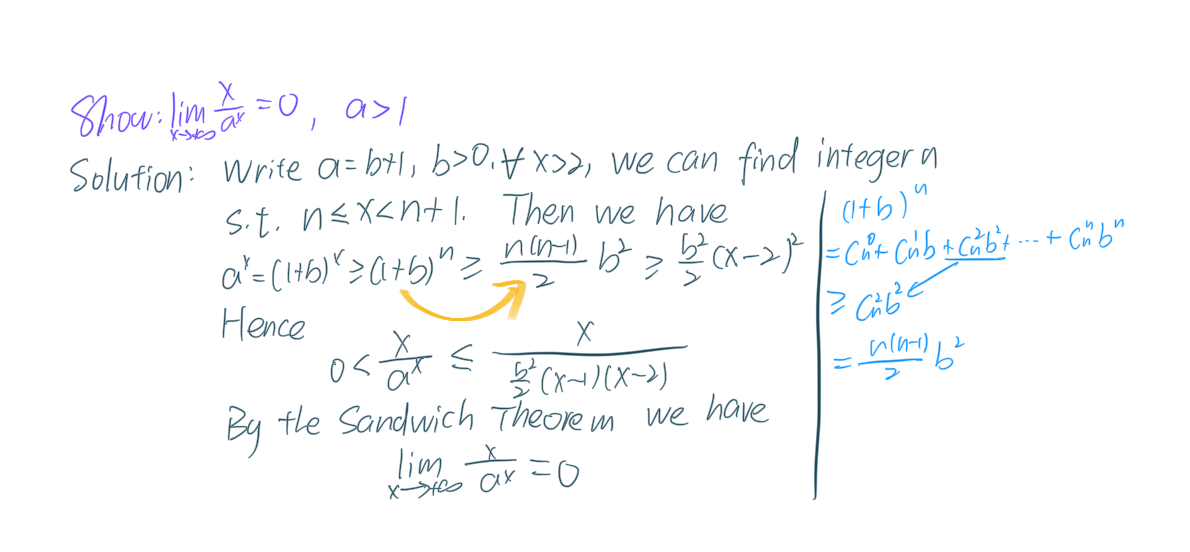 Show: lim_{x→+∞} x/a^x = 0, a>1
Solution: Write a=b+1, b>0. ∀ x>2, we can find integer n
s.t. n≤x<n+1. Then we have
a^x = (1+b)^x ≥ (1+b)^n ≥ n(n-1)/2 b^2 ≥ b^2/2 (x-2)^2
Hence
0 < x/a^x ≤ x / (b^2/2 (x-1)(x-2))
By the Sandwich Theorem we have
lim_{x→+∞} x/a^x = 0
(1+b)^n
= C_n^0 + C_n^1 b + C_n^2 b^2 + ⋯ + C_n^n b^n
≥ C_n^2 b^2
= n(n-1)/2 b^2